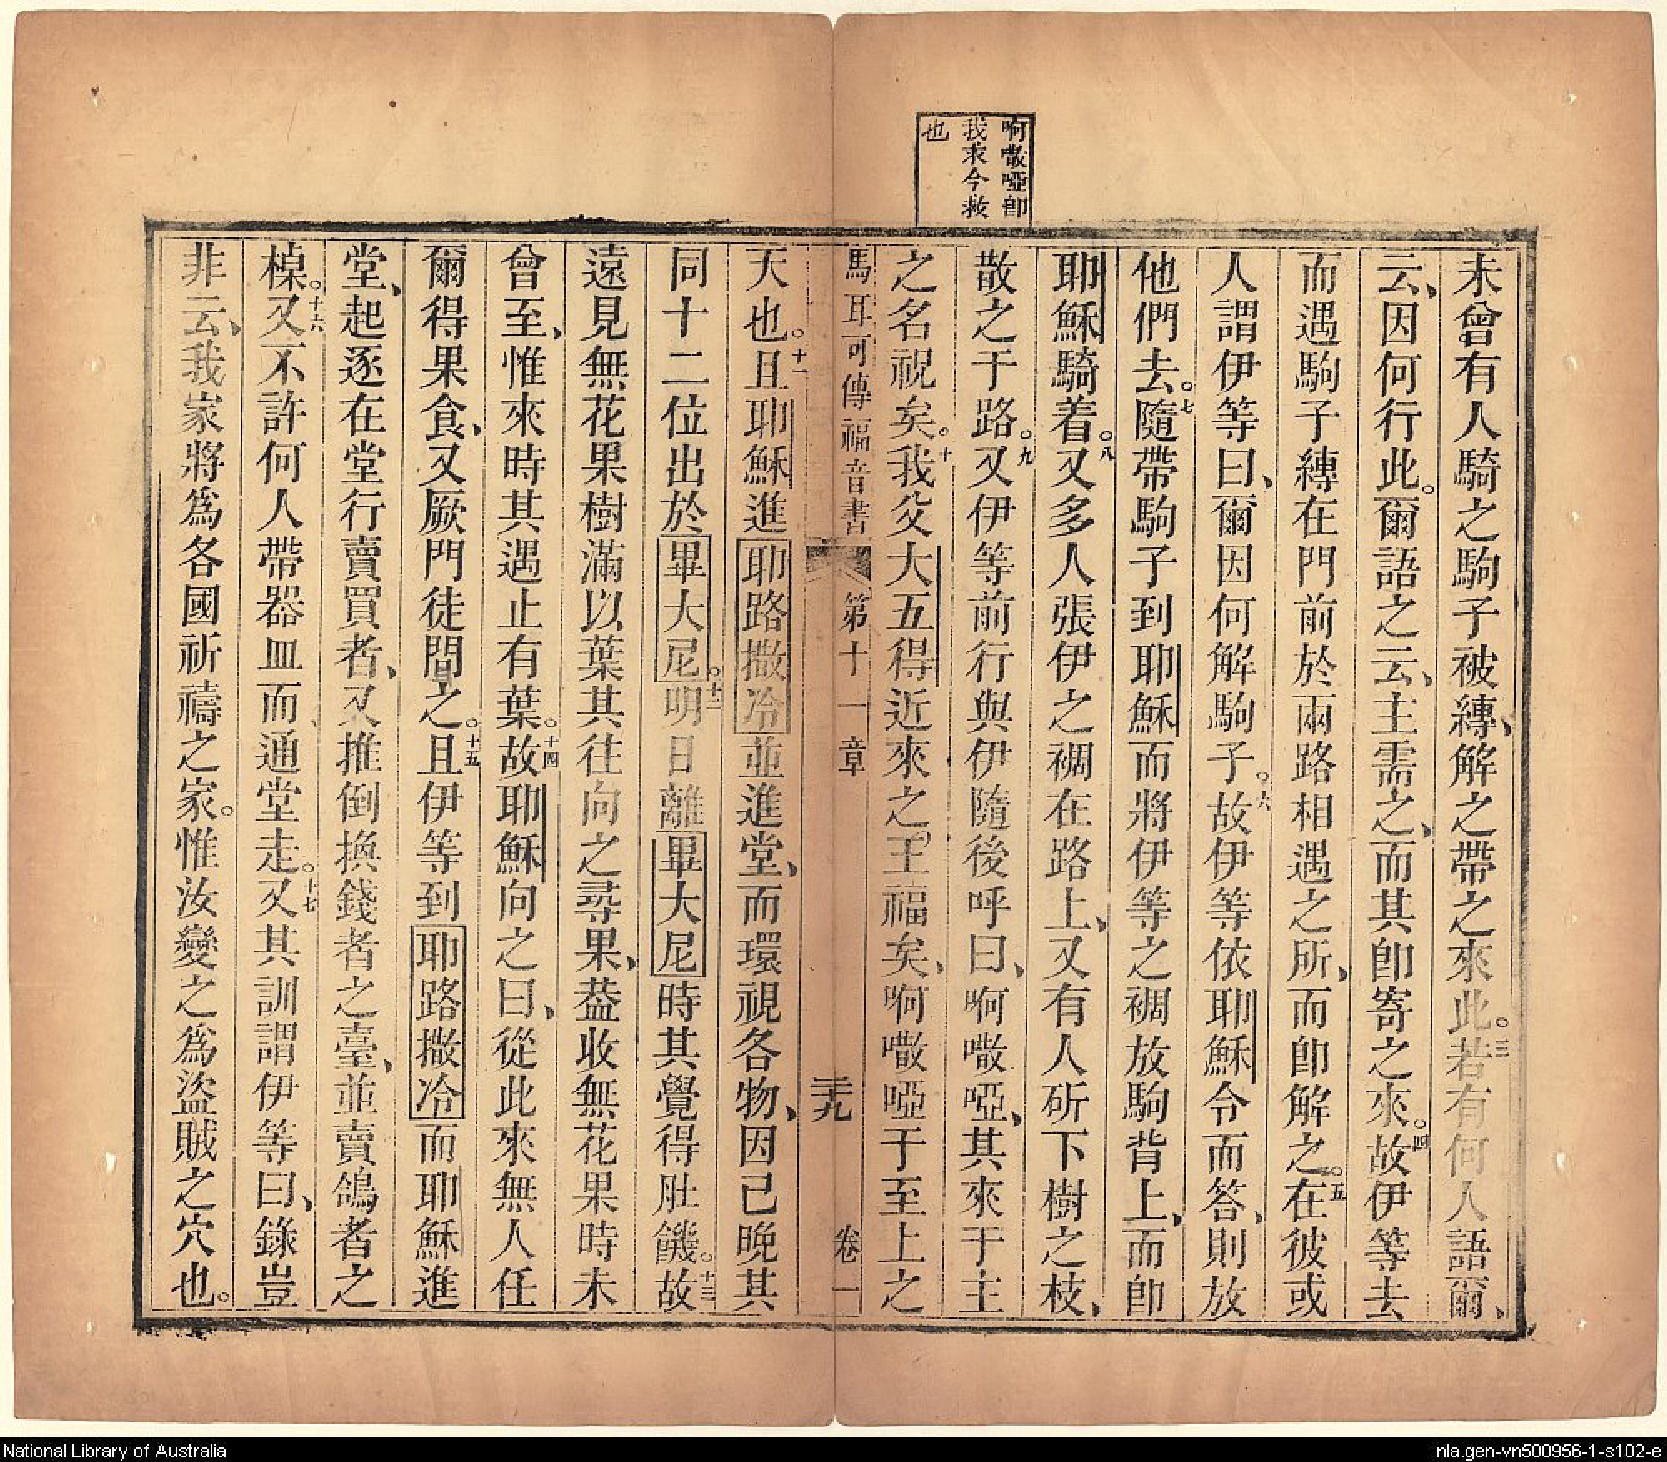 啊嘋啞卽
我求今救
也
未曾有人騎之駒子被縛、解之帶之來此。三若有何人語爾、
云、因何行此。爾語之云、主需之、而其卽寄之來。四故伊等去
而遇駒子縛在門前於兩路相遇之所、而卽解之。五在彼或
人謂伊等曰、爾因何解駒子。六故伊等依耶穌令而答、則放
他們去。七隨帶駒子到耶穌而將伊等之裯放駒背上、而卽
耶穌騎着。八又多人張伊之裯在路上、又有人斫下樹之枝、
散之于路。九又伊等前行與伊隨後呼曰、啊嘋啞、其來于主
之名視矣。十我父大五得近來之王福矣、啊嘋啞于至上之
馬耳可傳福音書 第十一章 二十九 卷一
天也。十一且耶穌進耶路撒冷並進堂、而環視各物、因已晚其
同十二位出於畢大尼。十二明日離畢大尼時其覺得肚饑。十三故
遠見無花果樹滿以葉其往向之尋果、葢收無花果時未
曾至、惟來時其遇止有葉。十四故耶穌向之曰、從此來無人任
爾得果食、又厥門徒聞之。十五且伊等到耶路撒冷而耶穌進
堂、起逐在堂行賣買者、又推倒換錢者之臺、並賣鴿者之
槕。十六又不許何人帶器皿而通堂走。十七又其訓謂伊等曰、錄豈
非云、我家將爲各國祈禱之家。惟汝變之爲盜賊之穴也。
National Library of Australia
nla.gen-vn500956-1-s102-e